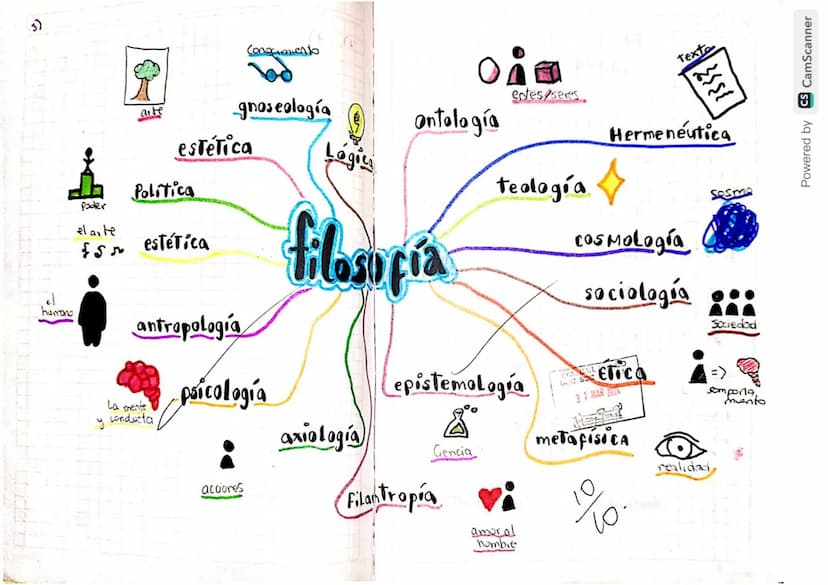 3)
conocimiento
gnoseología
arte
estética
Lógica
Política
poder
el arte
estética
el
humano
antropología
La mente
y conducta
psicología
axiología
acciones
filosofía
entes/seres
ontología
texto
Hermenéutica
teología
cosmo
cosmología
sociología
sociedad
ética
31 MAR
comporta
miento
epistemología
Ciencia
metafísica
realidad
Filantropía
amor al
hombre
10/10.
Powered by CS CamScanner